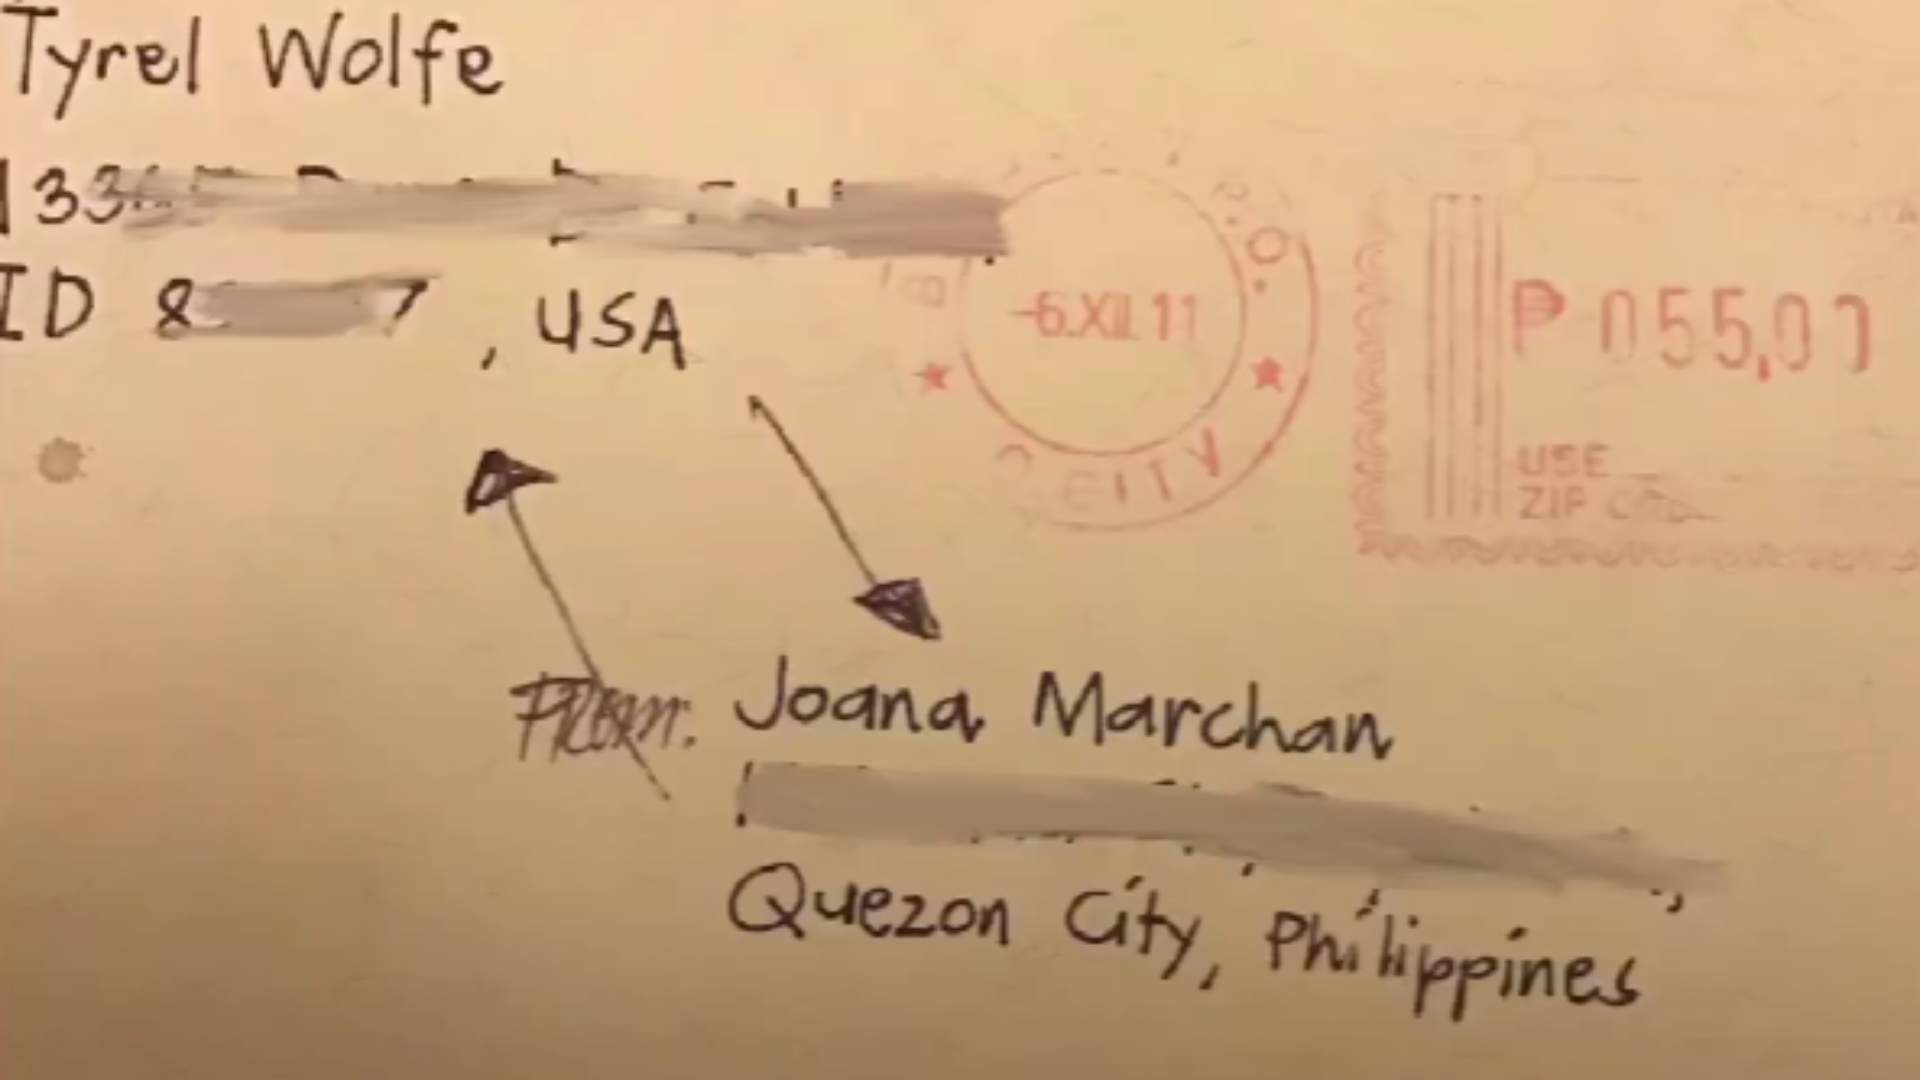 Tyrel Wolfe
ID 8 7, USA
-6.XII.11
CITY
₱ 055,0
USE
ZIP
From: Joana Marchan
Quezon City, Philippines